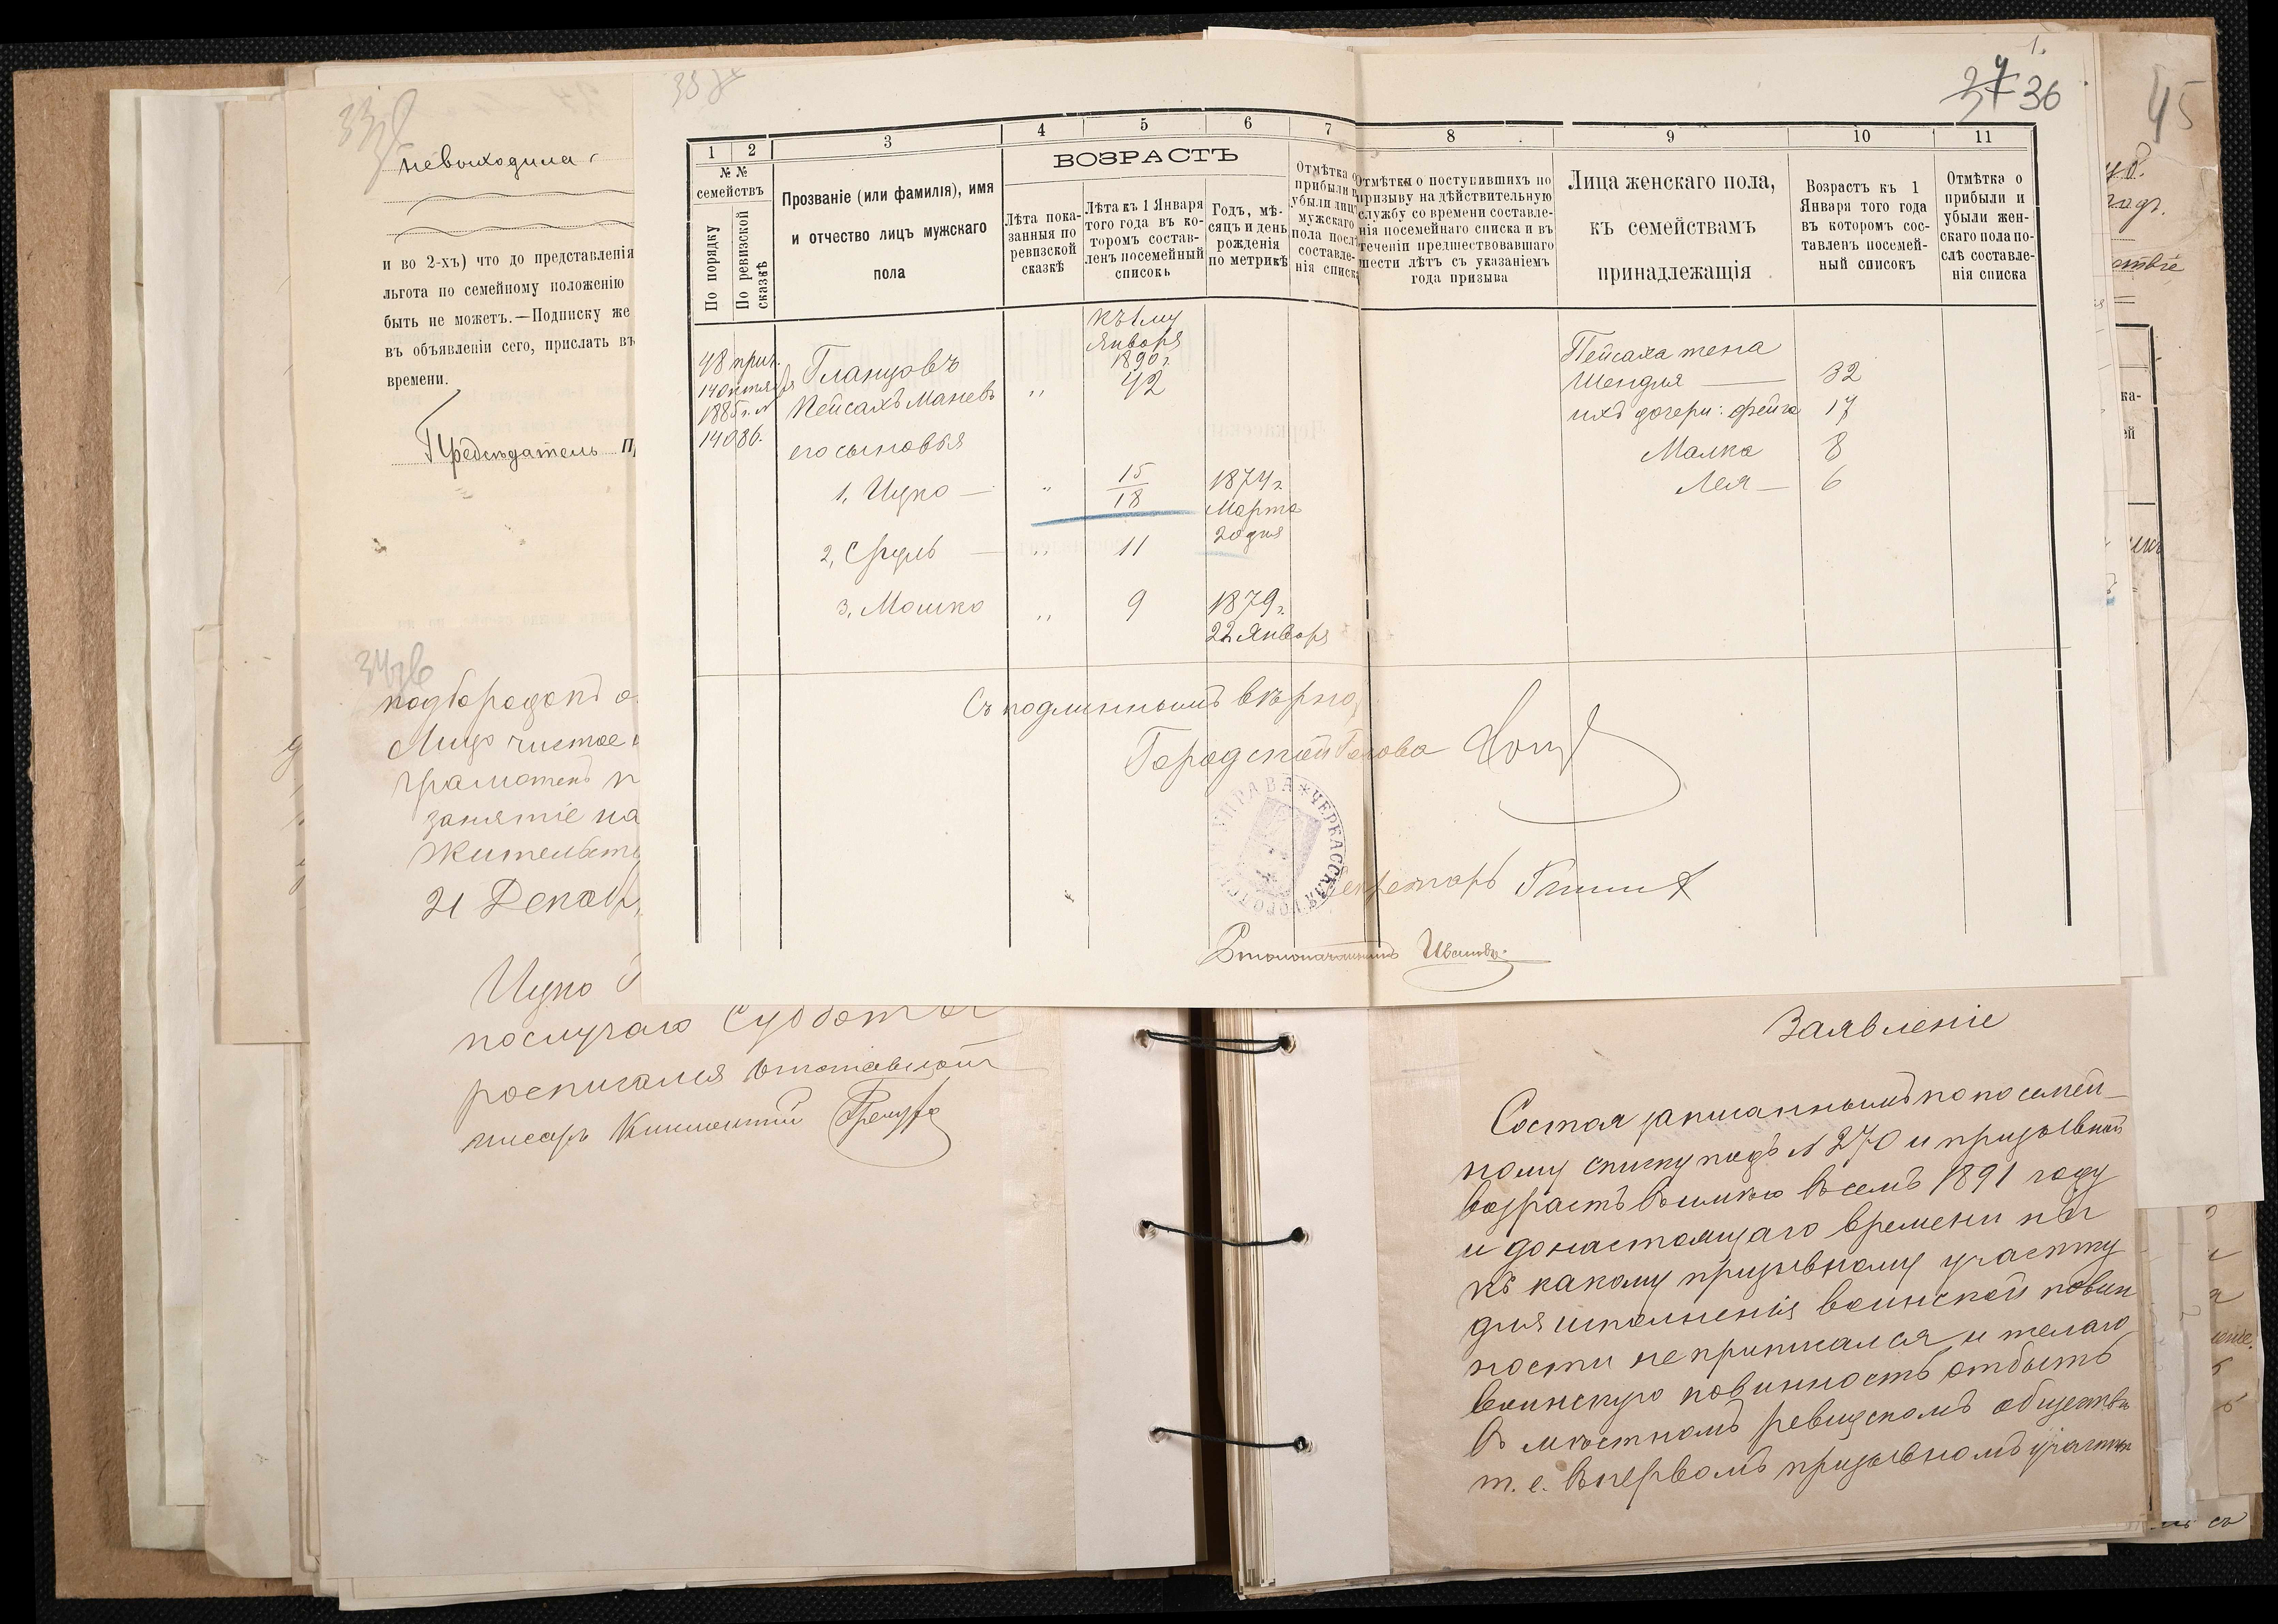 33об
невыходила
и во 2-хъ) что до представленія
льгота по семейному положенію
быть не можетъ.—Подписку же
въ объявленіи сего, прислать въ
времени.
Предсѣдатель
подбородокъ о
Лицо чистое
грамотенъ
занятіе на
жительст
21 Декабр
Ицко
послучаю Субботы
росписался отставной
писарь
1.
36
1 2 3 4 5 6 7 8 9 10 11
№ №
семействъ
По порядку
По ревизской
сказкѣ
Прозваніе (или фамилія), имя
и отчество лицъ мужскаго
пола
ВОЗРАСТЪ
Лѣта пока-
занныя по
ревизской
сказкѣ
Лѣта къ 1 Января
того года въ ко-
торомъ состав-
ленъ посемейный
списокъ
Годъ, мѣ-
сяцъ и день
рожденія
по метрикѣ
Отмѣтка о
прибыли и
убыли лиц
мужскаго
пола посл
составле-
нія списка
Отмѣтки о поступившихъ по
призыву на дѣйствительную
службу со времени составле-
нія посемейнаго списка и въ
теченіи предшествовавшаго
шести лѣтъ съ указаніемъ
года призыва
Лица женскаго пола,
къ семействамъ
принадлежащія
Возрастъ къ 1
Января того года
въ которомъ сос-
тавленъ посемей-
ный списокъ
Отмѣтка о
прибыли и
убыли жен-
скаго пола по-
слѣ составле-
нія списка
къ 1му
Января
1890 г.
48 прич.
14 октября
1885 г. №
14086.
Гланцовъ
Пейсахъ Маневъ " 42
его сыновья
1, Ицко — " 15
18
1874 г.
Марта
20 дня
2, Сруль — " 11
3, Мошко " 9 1879 г.
22 Января
Пейсаха жена
Шендля — 32
ихъ дочери: Фейга 17
Малка 8
Лея — 6
Съ подлиннымъ вѣрно,
Городской Голова
ЧЕРКАССКАЯ ГОРОДСК УПРАВА
Секретарь
Столоначальникъ Ивановъ
45
Заявленіе
Состоя записаннымъ по посемей-
ному списку подъ № 270 и призывной
возрастъ имѣю въ семъ 1891 году
и до настоящаго времени ни
къ какому призывному участку
для исполненія воинской повин
ности не приписался и желаю
воинскую повинность отбыть
въ мѣстномъ ревизскомъ обществѣ
т. е. въ первомъ призывномъ участкѣ